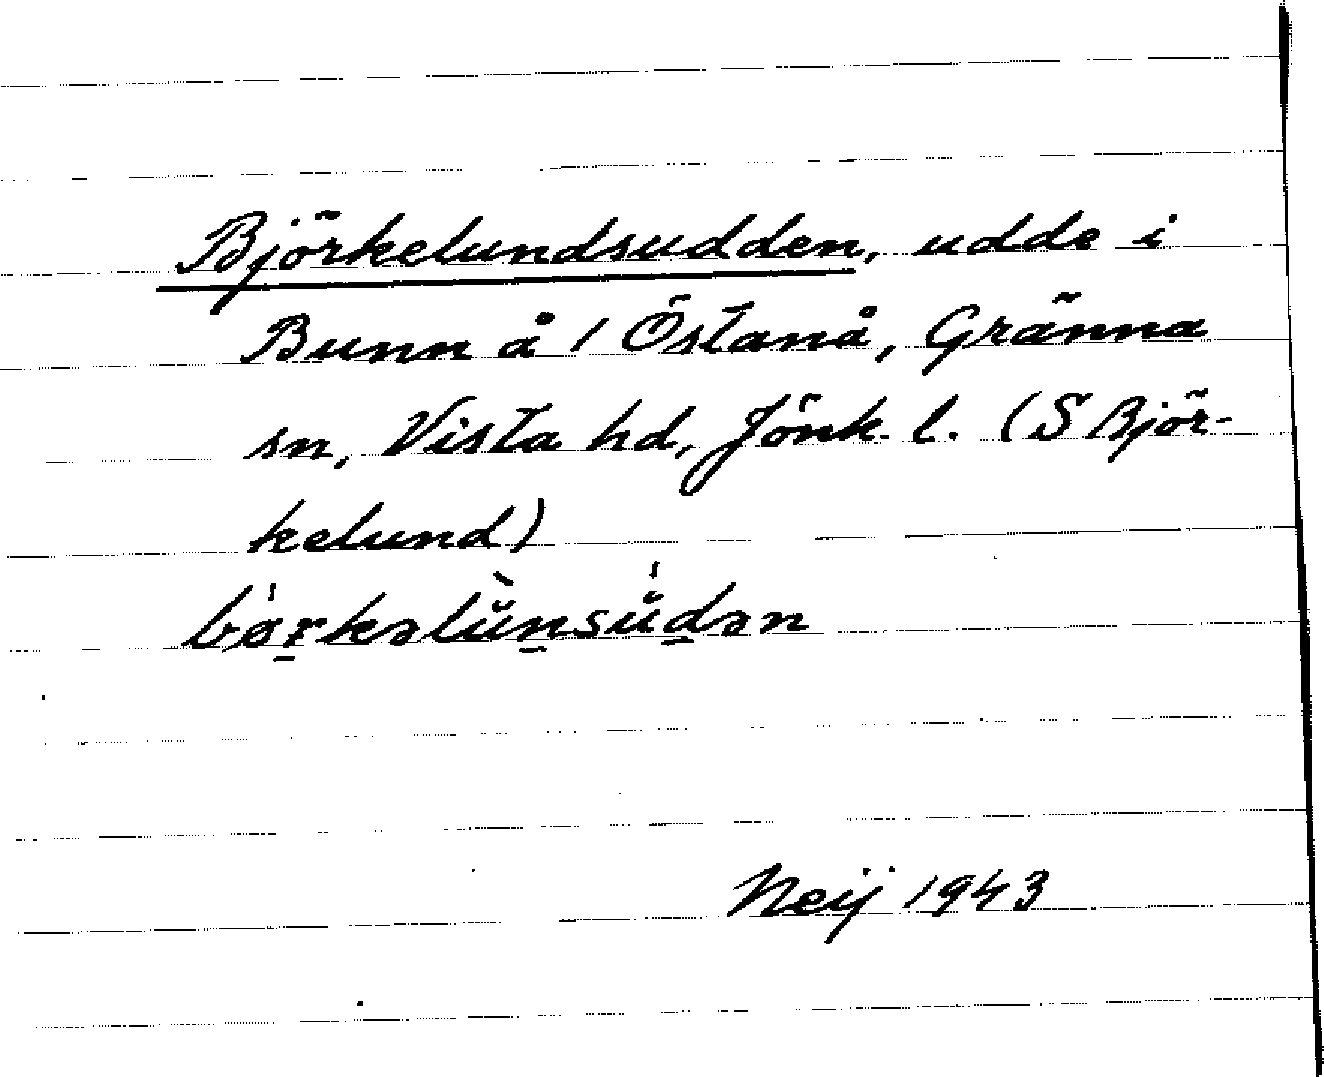 Björkelundsudden, udde i
Bunn å 1 Östanå, Gränna
sn, Vista hd, Jönk. l. (S Björ-
kelund)
Neij 1943